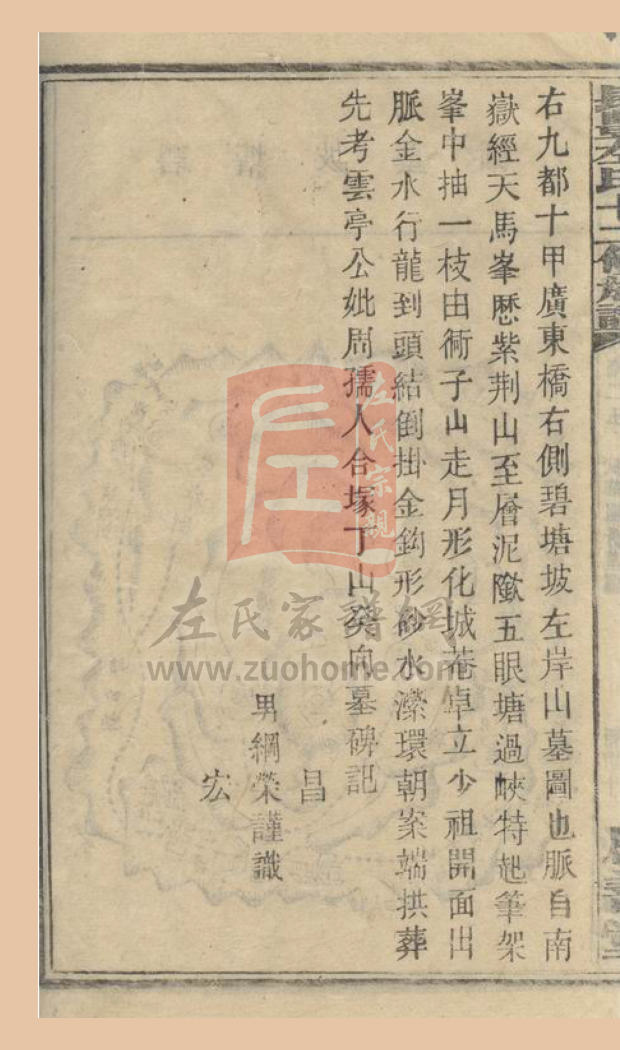 右九都十甲廣東橋右側碧塘坡左岸山墓圖也脈自南
嶽經天馬峯歷紫荆山至層泥隞五眼塘過峽特起筆架
峯中抽一枝由衙子山走月形化城菴卓立少祖開面出
脈金水行龍到頭結倒掛金鈎形砂水瀠環朝案端拱葬
先考雲亭公妣周孺人合塚丁山癸向墓碑記
昌
男綱榮謹識
宏
左氏宗親
左氏家譜網
www.zuohome.com